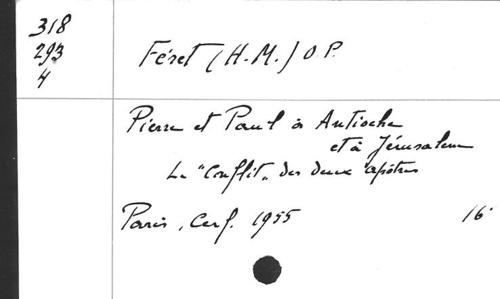 318
293
4
Féret (H.-M.) O.P.
Pierre et Paul à Antioche
et à Jérusalem
Le "Conflit" des deux apôtres
Paris, Cerf. 1955 16°